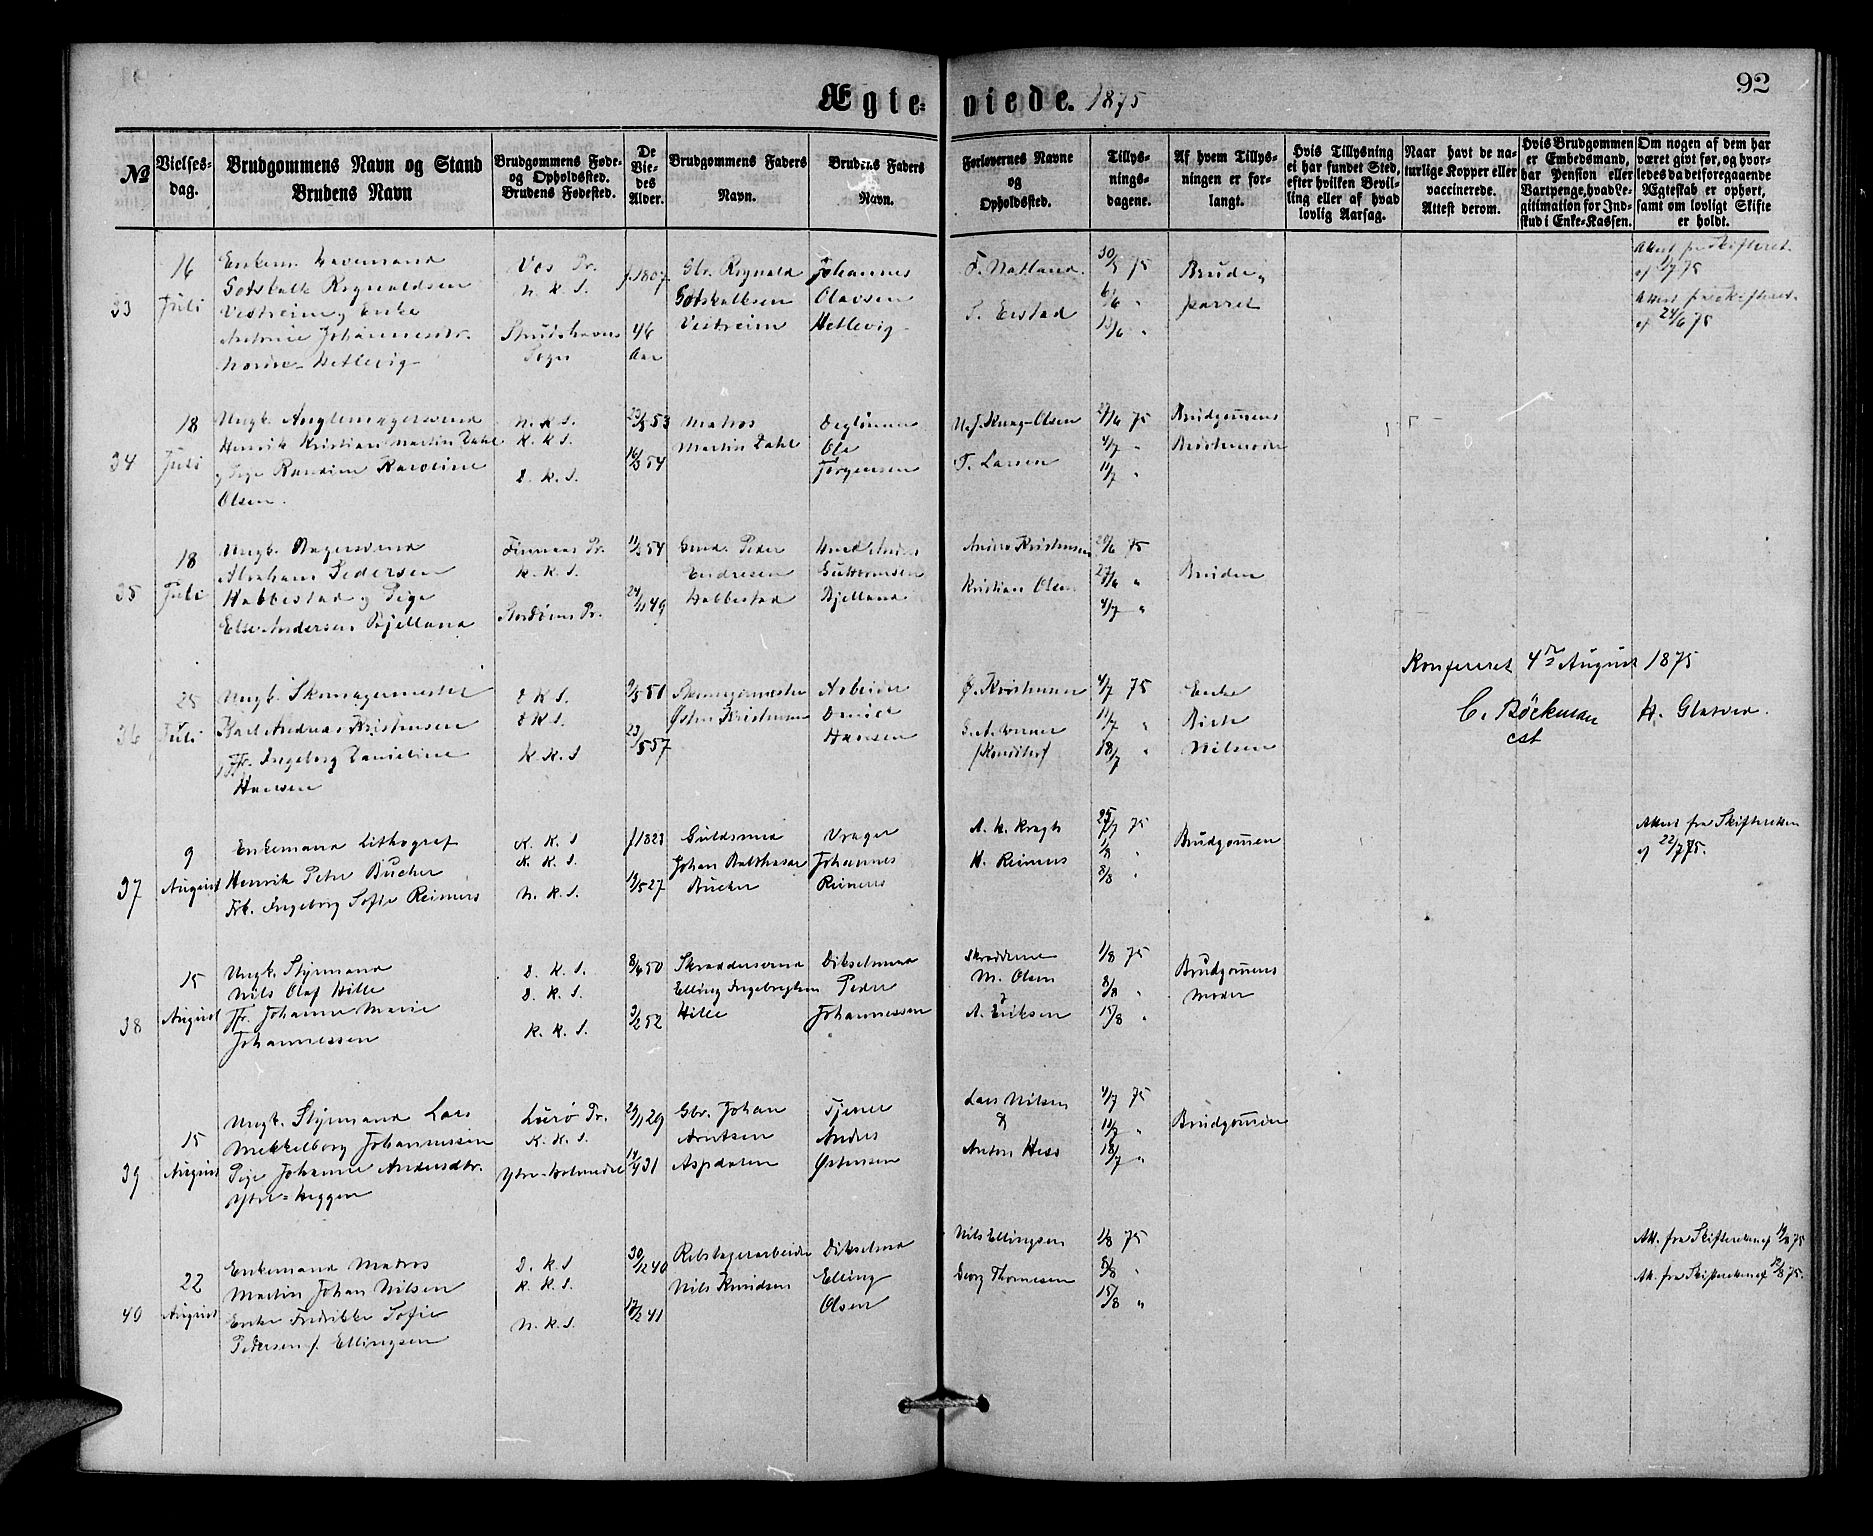 Ægteviede. 1875
92
№
Vielsesdag.
Brudgommens Navn og Stand
Brudens Navn
Brudgommens Føde-
og Opholdssted.
Brudens Fødested.
De
Vie-
des
Alder.
Brudgommens Faders
Navn.
Brudens Faders
Navn.
Forlovernes Navne
og
Opholdssted.
Tillys-
nings-
dagene.
Af hvem Tillys-
ningen er for-
langt.
Hvis Tillysning
ei har fundet Sted,
efter hvilken Bevil-
ling eller af hvad
lovlig Aarsag.
Naar havt de na-
turlige Kopper eller
vaccinerede.
Attest derom.
Hvis Brudgommen
er Embedsmand,
har Pension eller
Vartpenge, hvad Le-
gitimation for Ind-
skud i Enke-Kassen.
Om nogen af dem har
været givt før, og hvor-
ledes da det foregaaende
Ægteskab er ophørt,
samt om lovligt Skifte
er holdt.
33
16
Juli
Enkem.
Gotskalk Regnaldsen
Vestreim og Enke
Johannesdtr.
Hetlevig
Vos Pr.
N. K. S.
Strudshavns
Sogn
f. 1807
46
Aar
Gbr. Regnald
Gotskalksen
Vestreim
Johannes
Olavsen
Hetlevig
T. Natland.
S. Eestad
30/5 75
6/6 "
13/6 "
Brude-
parret
Attest fr Skifteret.
af 1/7 75
Attest fr Skifteret.
af 24/6 75
34
18
Juli
Ungk.
Henrik Kristian Martin Dahl
og Pige Randine Karoline
Olsen.
N. K. S.
K. K. S.
D. K. S.
23/5 53
16/3 54
Matros
Martin Dahl
Ole
Jørgensen
T. Larsen
27/6 75
4/7 "
11/7 "
Brudgommens
35
18
Juli
Ungk.
Abraham Pedersen
Habbestad og Pige
Else Andersen Bjelland
Finnaas Pr.
K. K. S.
Stordøens Pr.
11/2 54
24/11 49
Peder
Endresen
Habbestad
Guttormsen
Bjelland
Anders Kristensen
Kristian Olsen
20/6 75
27/6 "
4/7 "
Bruden
Konfereret 4de August 1875
C. Böckman H. Glatved.
cst
36
25
Juli
Ungk. Skomagermester
Karl Andreas Kristensen
Jfr. Ingeborg Danieline
Hansen
D K S.
D K S.
K. K. S
9/5 51
23/5 57
Skomagermester
Østen Kristensen
Arbeider
David
Hansen
Ø. Kristensen
4/7 75
11/7 "
18/7 "
Enke
Nilsen
37
9
August
Enkemand Lithograf
Henrik Petr Bucher
Frk. Ingeborg Sofie Reimers
K. K. S
K. K. S.
N. K. S.
f 1823
19/5 27
Guldsmed
Johan Balthasar
Bucher
Vrager
Johannes
Reimers
A. H. Kragh
H. Reimers
25/7 75
1/8 "
8/8 "
Brudgommen
Attest fra Skifteretten
af 22/7 75.
38
15
August
Ungk. Styrmand
Nils Olaf Hille
Jfr. Johanne Marie
Johannessen
D. K. S.
D. K. S.
K. K. S.
8/6 50
3/2 52
Skræddersvend
Elling Ingebrigtsen
Hille
Dikselmand
Peder
Johannessen
M. Olsen
A. Eriksen
1/8 75
8/8 "
15/8 "
Brudgommens
Moder
39
15
August
Ungk. Styrmand Lars
Mekkelborg Johannessen
Pige Johanne Andersdtr.
Ytre-Heggen
Lurø Pr.
K. K. S.
Ytre-Holmedal
29/1 29
14/9 31
Gbr. Johan
Arntsen
Aspdalen
Tjener
Anders
Østensen
Lars Nilsen
&
Anton Hess
4/7 75
11/7 "
18/7 "
Brudgommen
40
22
August
Enkemand Matros
Martin Johan Nilsen
Enke Fredrikke Sofie
Pedersen f. Ellingsen
D. K. S
K. K. S.
N. K. S.
30/12 40
17/2 41
Rebslagerarbeider
Nils Knudsen
Dikselmd
Elling
Olsen
Nils Ellingsen
Georg Thomesen
1/8 75
8/8 "
15/8 "
Att. fra Skifteretten af
Att. fra Skifteretten af